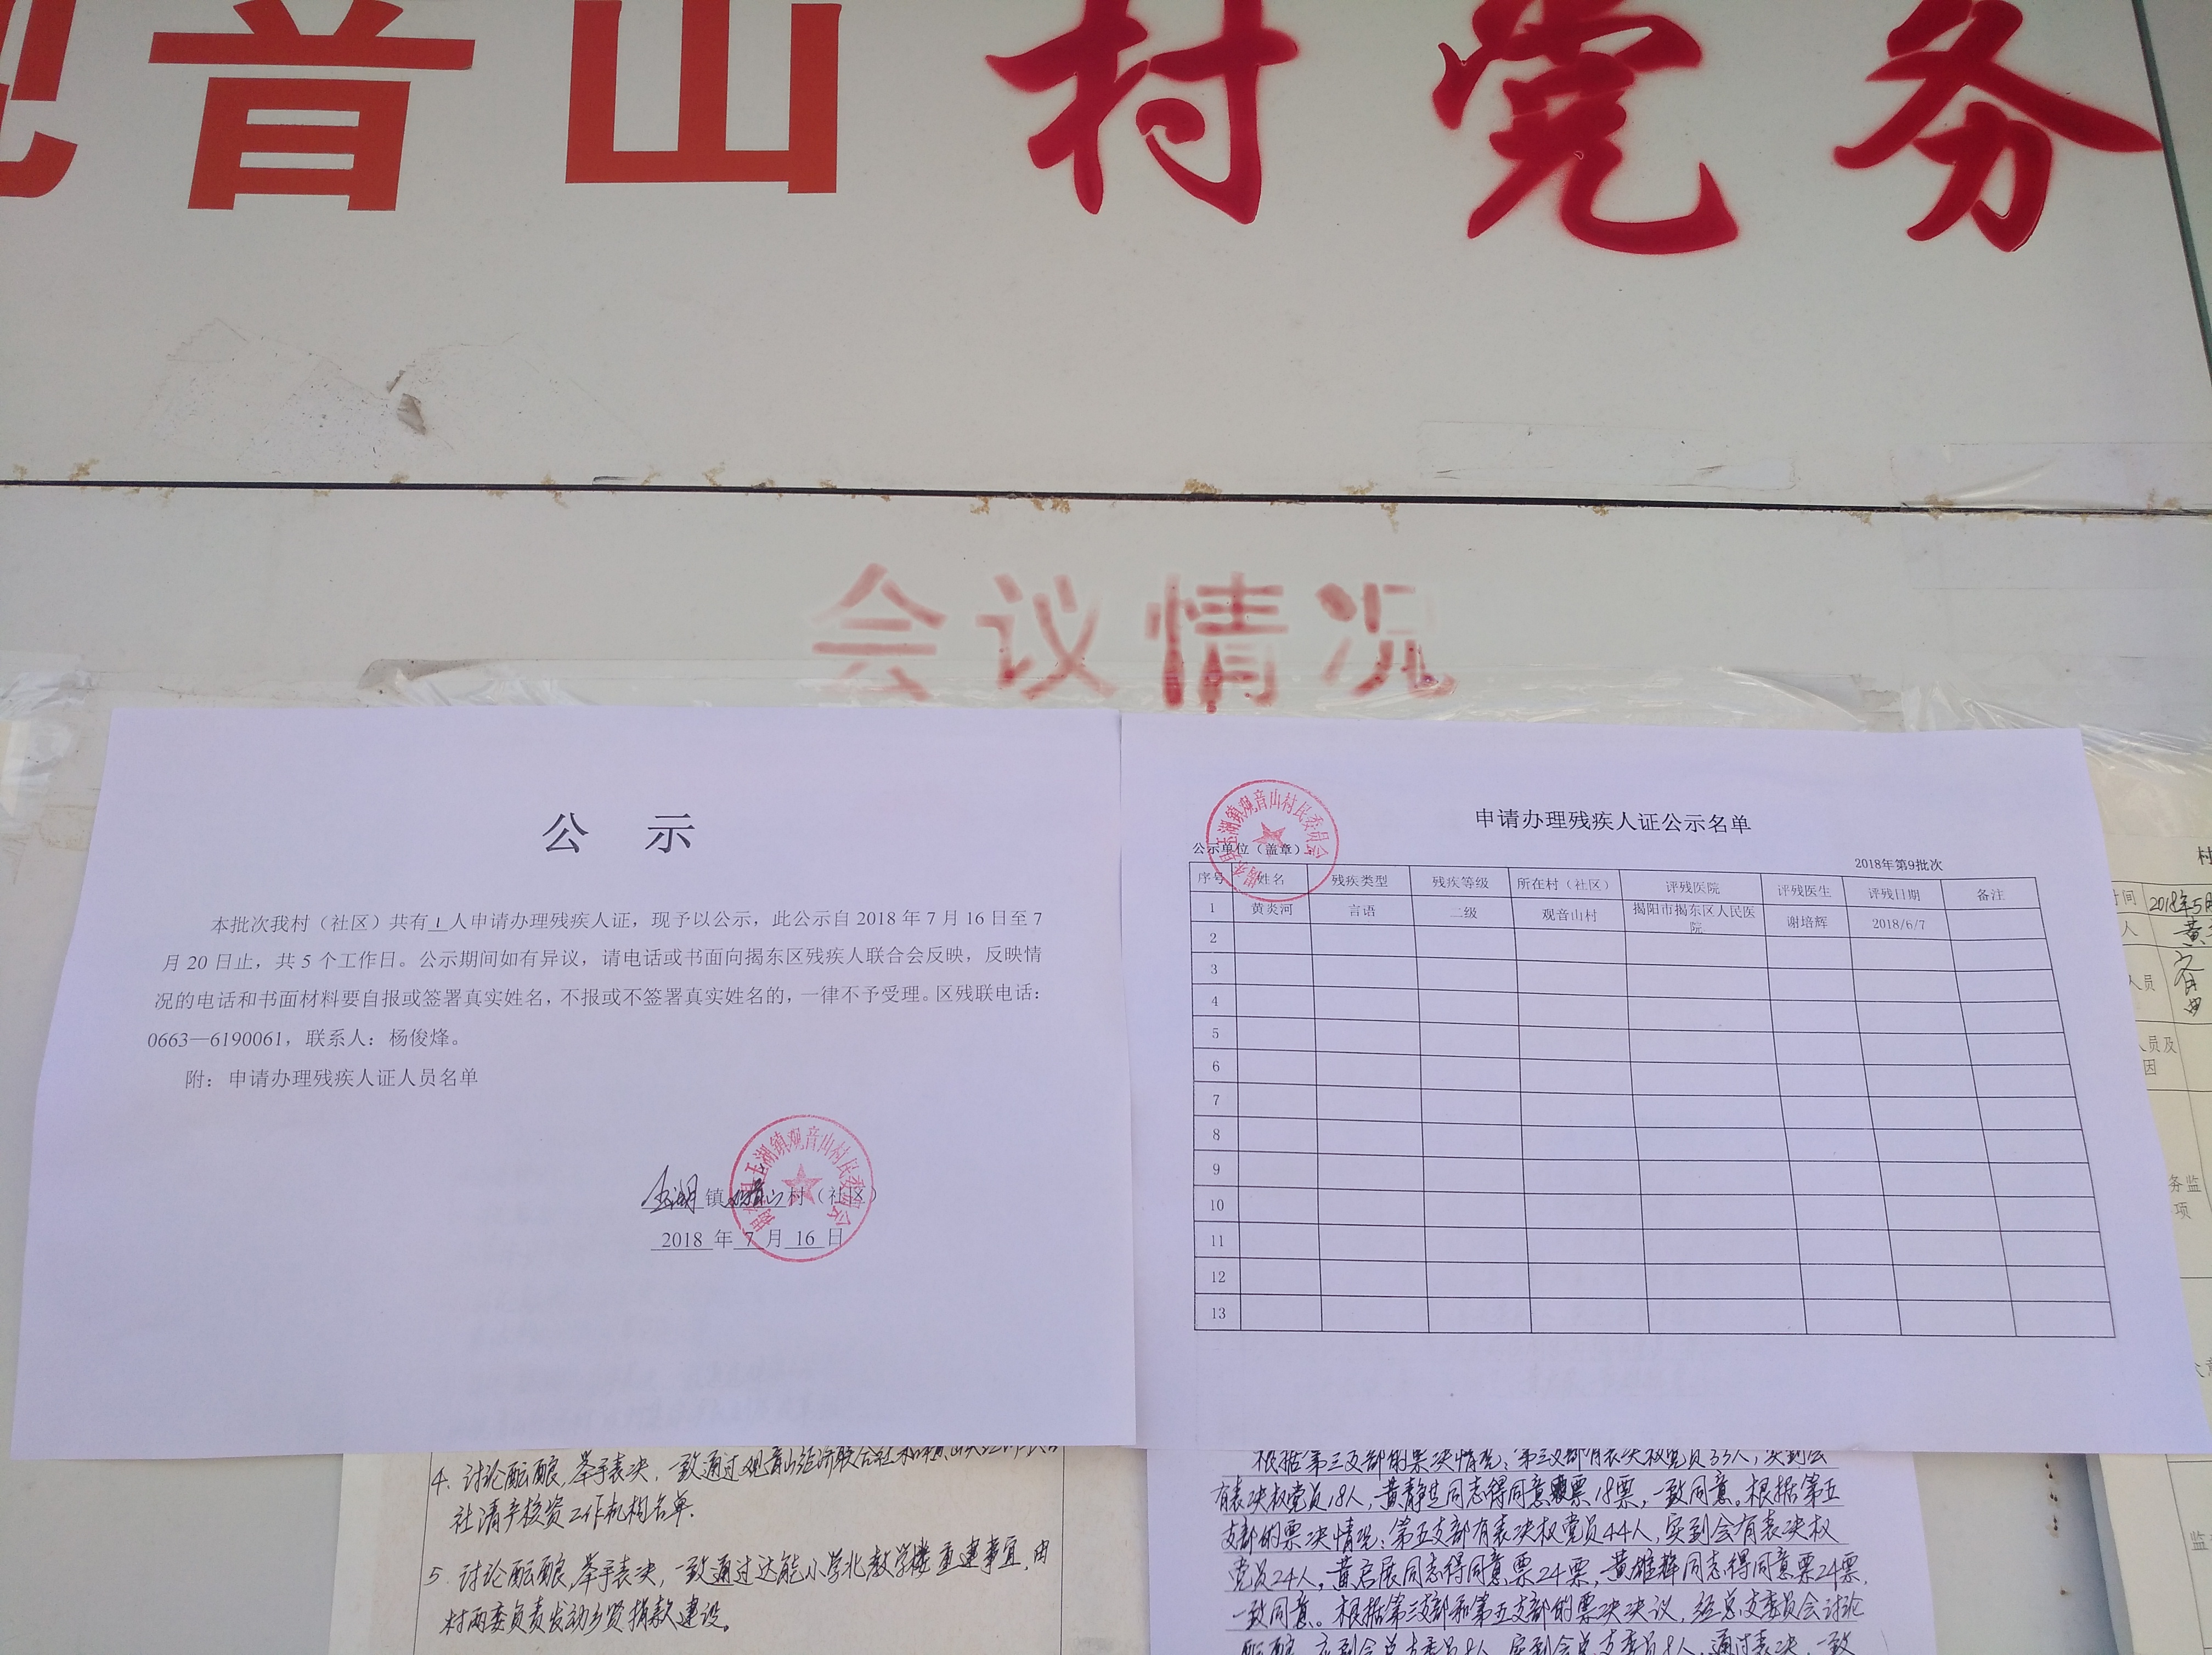 观音山村党务
会议情况
公 示
本批次我村（社区）共有 1 人申请办理残疾人证，现予以公示，此公示自 2018 年 7 月 16 日至 7
月 20 日止，共 5 个工作日。公示期间如有异议，请电话或书面向揭东区残疾人联合会反映，反映情
况的电话和书面材料要自报或签署真实姓名，不报或不签署真实姓名的，一律不予受理。区残联电话：
0663—6190061，联系人：杨俊烽。
附：申请办理残疾人证人员名单
玉湖 镇 观音山 村（社区）
2018 年 7 月 16 日
玉湖镇观音山村民委员会
申请办理残疾人证公示名单
揭东县玉湖镇观音山村民委员会
公示单位（盖章）
2018年第9批次
序号 姓名 残疾类型 残疾等级 所在村（社区） 评残医院 评残医生 评残日期 备注
1 黄炎河 言语 二级 观音山村 揭阳市揭东区人民医院 谢培辉 2018/6/7
2
3
4
5
6
7
8
9
10
11
12
13
4. 讨论酝酿,举手表决,一致通过观音山经济联合社
社清产核资工作机构名单.
5. 讨论酝酿,举手表决,一致通过达能小学北教学楼重建事宜,由
村两委负责发动乡贤捐款建设。
根据第三支部的票决情况：第三支部有表决权党员33人，实到会
有表决权党员18人，黄静生同志得同意票18票，一致同意。根据第五
支部的票决情况：第五支部有表决权党员44人，实到会有表决权
党员24人，黄启展同志得同意票24票，黄雄辉同志得同意票24票，
一致同意。根据第三支部和第五支部的票决决议，经总支委员会讨论
酝酿，应到会总支委员8人，实到会总支委员8人，通过表决，一致
村
时间 2018年5月
人 黄
人员
人员及
因
务监
项
监